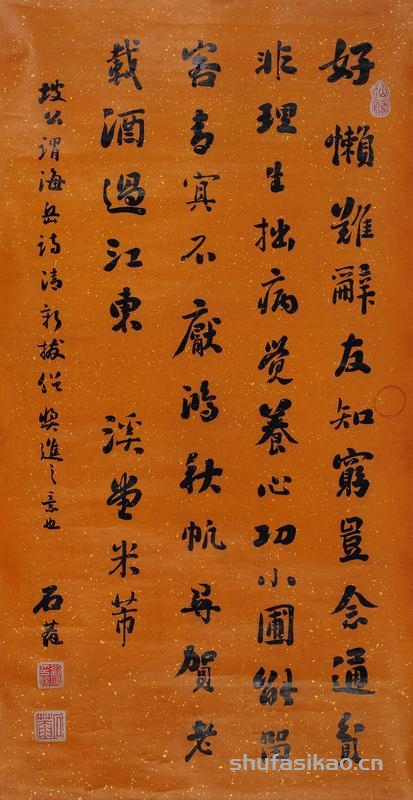 好懶難辭友知窮豈念通貧
非理生拙病覺養心功小圃能留
客青冥不厭鴻秋帆尋賀老
載酒過江東 溪堂米芾
坡公謂海岳詩清新拔俗獎進之意也 石菴
shufasikao.cn